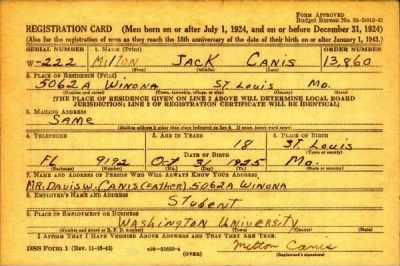 FORM APPROVED
REGISTRATION CARD (Men born on or after July 1, 1924, and on or before December 31, 1924)
(Also for the registration of men as they reach the 18th anniversary of the date of their birth on or after January 1, 1943.)
SERIAL NUMBER 1. NAME (Print) ORDER NUMBER
W-222 Milton Jack Canis 13,860
2. PLACE OF RESIDENCE (Print)
5062A Winona St. Louis Mo.
[THE PLACE OF RESIDENCE GIVEN ON LINE 2 ABOVE WILL DETERMINE LOCAL BOARD
JURISDICTION; LINE 2 OF REGISTRATION CERTIFICATE WILL BE IDENTICAL]
3. MAILING ADDRESS
Same
4. TELEPHONE 5. AGE IN YEARS 6. PLACE OF BIRTH
18 St. Louis
DATE OF BIRTH
FL 9192 Oct 31 1925 Mo.
7. NAME AND ADDRESS OF PERSON WHO WILL ALWAYS KNOW YOUR ADDRESS
Mr. Davis W. Canis (Father) 5062A Winona
8. EMPLOYER'S NAME AND ADDRESS
Student
9. PLACE OF EMPLOYMENT OR BUSINESS
Washington University
I AFFIRM THAT I HAVE VERIFIED ABOVE ANSWERS AND THAT THEY ARE TRUE.
DSS Form 1 (OVER) Milton Canis